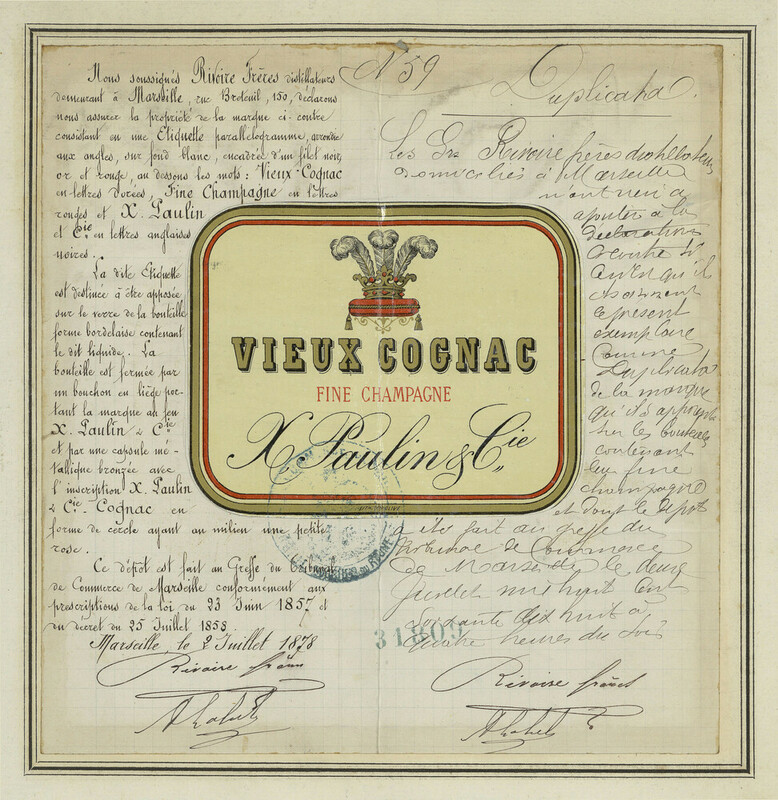 Nous soussignés Rivoire Frères distillateurs
demeurant à Marseille, rue Breteuil, 150, déclarons
nous assurer la propriété de la marque ci-contre
consistant en une Etiquette parallélogramme, arrondie
aux angles, sur fond blanc, encadrée d'un filet noir,
or et rouge, au dessous les mots: Vieux Cognac
en lettres dorées, Fine Champagne en lettres
rouges et X. Paulin
et Cie en lettres anglaises
noires.
La dite Etiquette
est destinée à être apposée
sur le verre de la bouteille
forme bordelaise contenant
le dit liquide. La
bouteille est fermée par
un bouchon en liège por-
tant la marque au feu
X. Paulin & Cie
et par une capsule mé-
tallique bronzée avec
l'inscription X. Paulin
& Cie Cognac en
forme de cercle ayant au milieu une petite
rose.
Ce dépôt est fait au Greffe du Tribunal
de Commerce de Marseille conformément aux
prescriptions de la loi du 23 Juin 1857 et
du décret du 25 Juillet 1858.
Marseille, le 2 Juillet 1878
Rivoire frères
VIEUX COGNAC
FINE CHAMPAGNE
X. Paulin & Cie
N 59
Duplicata
Les Srs Rivoire frères distillateurs
domiciliés à Marseille
n'ont rien à
ajouter à la
declaration
ci contre si
ce n'est qu'il
choisissent
le présent
exemplaire
Comme
Duplicata
de la marque
qu'ils apposent
sur les bouteilles
contenant
leur fine
champagne
et dont le dépôt
a été fait au greffe du
Tribunal de Commerce
de Marseille le deux
Juillet mil huit cent
soixante dix huit à
quatre heures du soir
31809
Rivoire frères